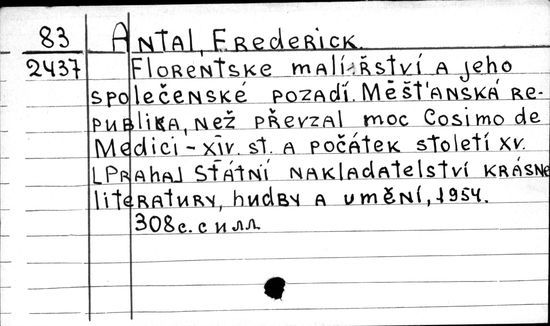 83 Antal, Frederick.
2437 Florentske malířství a jeho
společenské pozadí. Měšťanská re-
publika, než převzal moc Cosimo de
Medici - XIV. st. a počátek století XV.
[Praha] Státní nakladatelství krásne
literatury, hudby a umění, 1954.
308 с. с илл.